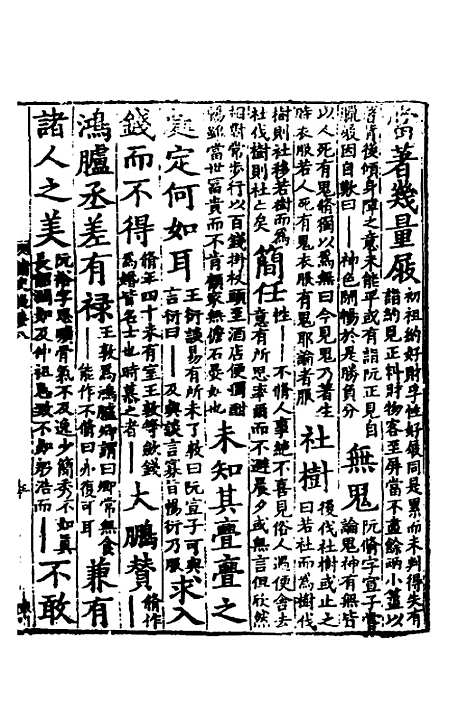 當著幾量屐初祖約好財孚性好屐同是累而未判得失有
詣約見正料財物客至屏當不盡餘兩小簏以
著背後傾身障之意未能平或有詣阮正見自
蠟屐因自歎曰——神色閑暢於是勝負分無鬼阮脩字宣子嘗
論鬼神有無皆
以人死有鬼脩獨以為無曰今見鬼乃著生
時衣服若人死有鬼衣服有鬼耶論者服社樹後伐社樹或止之
曰若社而為樹伐
樹則社移若樹而為
社伐樹則社亡矣簡任性——不脩人事絕不喜見俗人遇便舍去
意有所思率爾而不避晨夕或無言但欣然
相對常步行以百錢掛杖頭至酒店便獨酣
暢雖當世富貴而不肯顧家無儋石晏如也未知其亹亹之
處定何如耳王衍談易有所未了敦曰阮宣子可與
言衍曰——及與談言寡旨暢衍乃服求入
錢而不得脩年四十未有室王敦等歛錢
為婚皆名士也時慕之者——大鵬贊脩作
鴻臚丞差有禄王敦為鴻臚卿謂曰卿常無食
——能作不脩曰亦復可耳兼有
諸人之美阮裕字思曠骨氣不及逸少簡秀不如真
長韶潤不如仲祖思致不如殷浩而——不敢